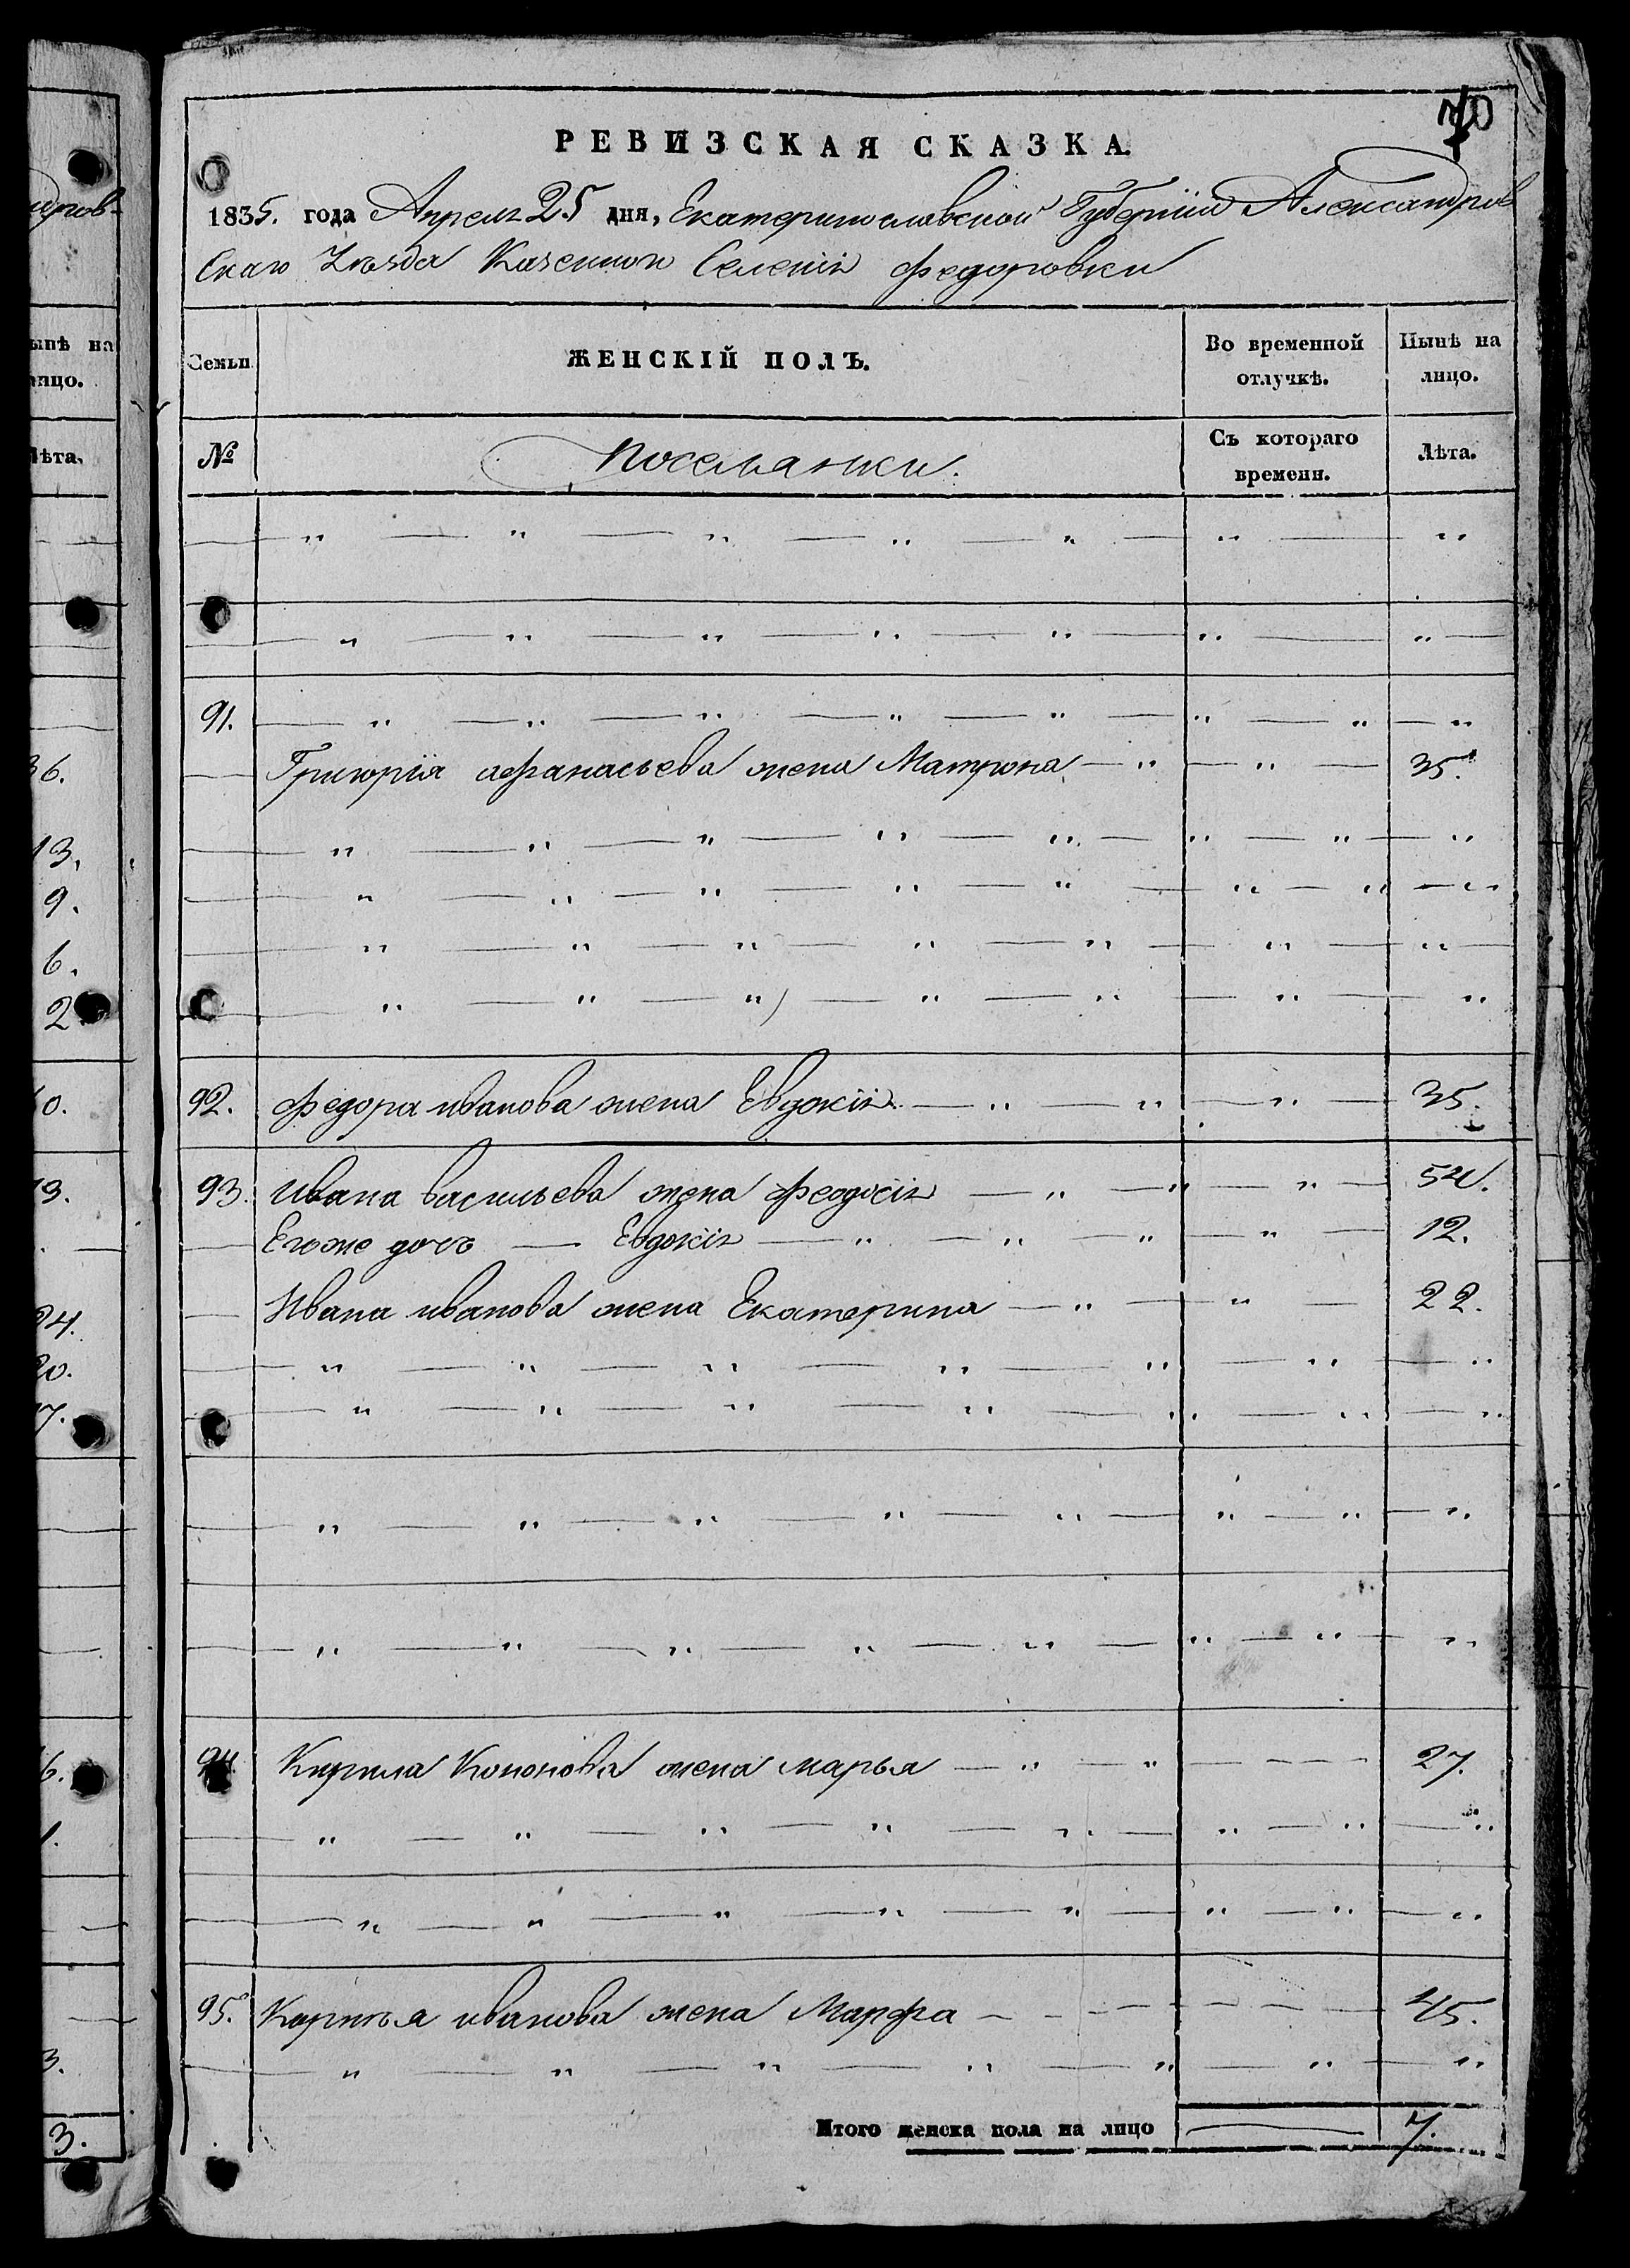 70
РЕВИЗСКАЯ СКАЗКА.
1835. года Апреля 25 дня, Екатеринославской Губернии Александров
Скаго Уезда Казенной Селенія Федоровки
Семьи
ЖЕНСКІЙ ПОЛЪ.
Во временной отлучкѣ.
Нынѣ на лицо.
№
Поселянки.
Съ котораго времени.
Лѣта.
91.
Григорія афанасьева жена Матрона 35.
92. Федора иванова жена Евдокія 35.
93. Ивана васильева жена Феодосія 54.
Егоже дочь Евдокія 12.
Ивана иванова жена Екатерина 22.
94 Кирила Кононова жена марья 27.
95. Карнѣя иванова жена Марфа 45.
Итого женска пола на лицо 7.
ыпѣ на
лицо.
Лѣта.
36.
13.
9.
6.
2
24.
20.
3.
3.